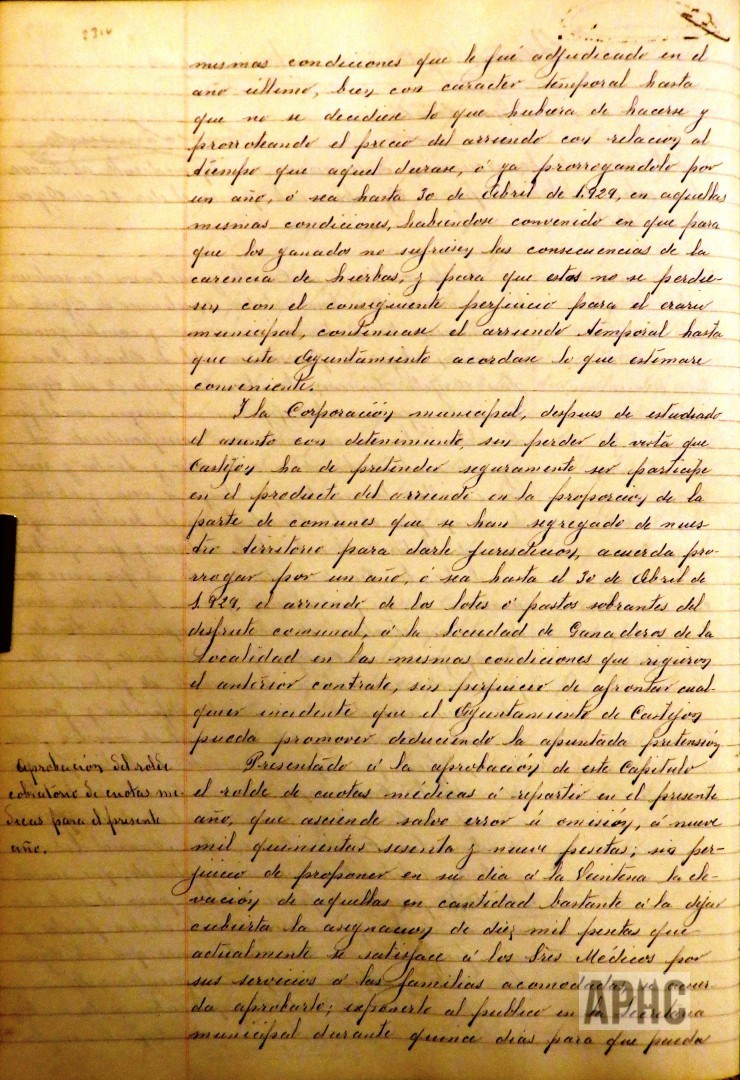 mismas condiciones que le fué adjudicado en el
año último, bien con caracter temporal hasta
que no se decidiese lo que hubiera de hacerse y
prorroteando el precio del arriendo con relacion al
tiempo que aquel durase, ó ya prorrogandolo por
un año, ó sea hasta 30 de Abril de 1.929, en aquellas
mismas condiciones, habiendose convenido en que para
que los ganados no sufriesen las consecuencias de la
carencia de hierbas, y para que estas no se perdie-
sen con el consiguiente perjuicio para el erario
municipal, continuase el arriendo temporal hasta
que este Ayuntamiento acordase lo que estimare
conveniente.
Y la Corporación municipal, despues de estudiado
el asunto con detenimiento, sin perder de vista que
Castejon ha de pretender seguramente ser participe
en el producto del arriendo en la proporcion de la
parte de comunes que se han segregado de nues
tro territorio para darle jurisdicion, acuerda pro-
rrogar por un año, ó sea hasta el 30 de Abril de
1.929, el arriendo de los lotes ó pastos sobrantes del
desfrute comunal, á la Sociedad de Ganaderos de la
Localidad en las mismas condiciones que rigieron
el anterior contrato, sin perjuicio de afrontar cual-
quier incidente que el Ayuntamiento de Castejon
pueda promover deduciendo la apuntada pretensión
Aprobacion del rolde
cobratorio de cuotas mé-
dicas para el presente
año.
Presentado á la aprobacion de este Capitulo
el rolde de cuotas médicas á repartir en el presente
año, que asciende salvo error ú omisión, á nueve
mil quinientas sesenta y nueve pesetas; sin per-
juicio de proponer en su dia á la Veintena la ele-
vación de aquellas en cantidad bastante á la dejar
cubierta la asignacion de diez mil pesetas que
actualmente se satisface á los Sres Médicos por
sus servicios á las familias acomodadas, se acuer
da aprobarlo; exponerlo al publico en la Secretaria
municipal durante quince dias para que pueda
APHC